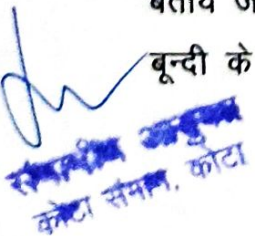 बताये ज
बून्दी के
संभागीय आयुक्त
कोटा संभाग, कोटा